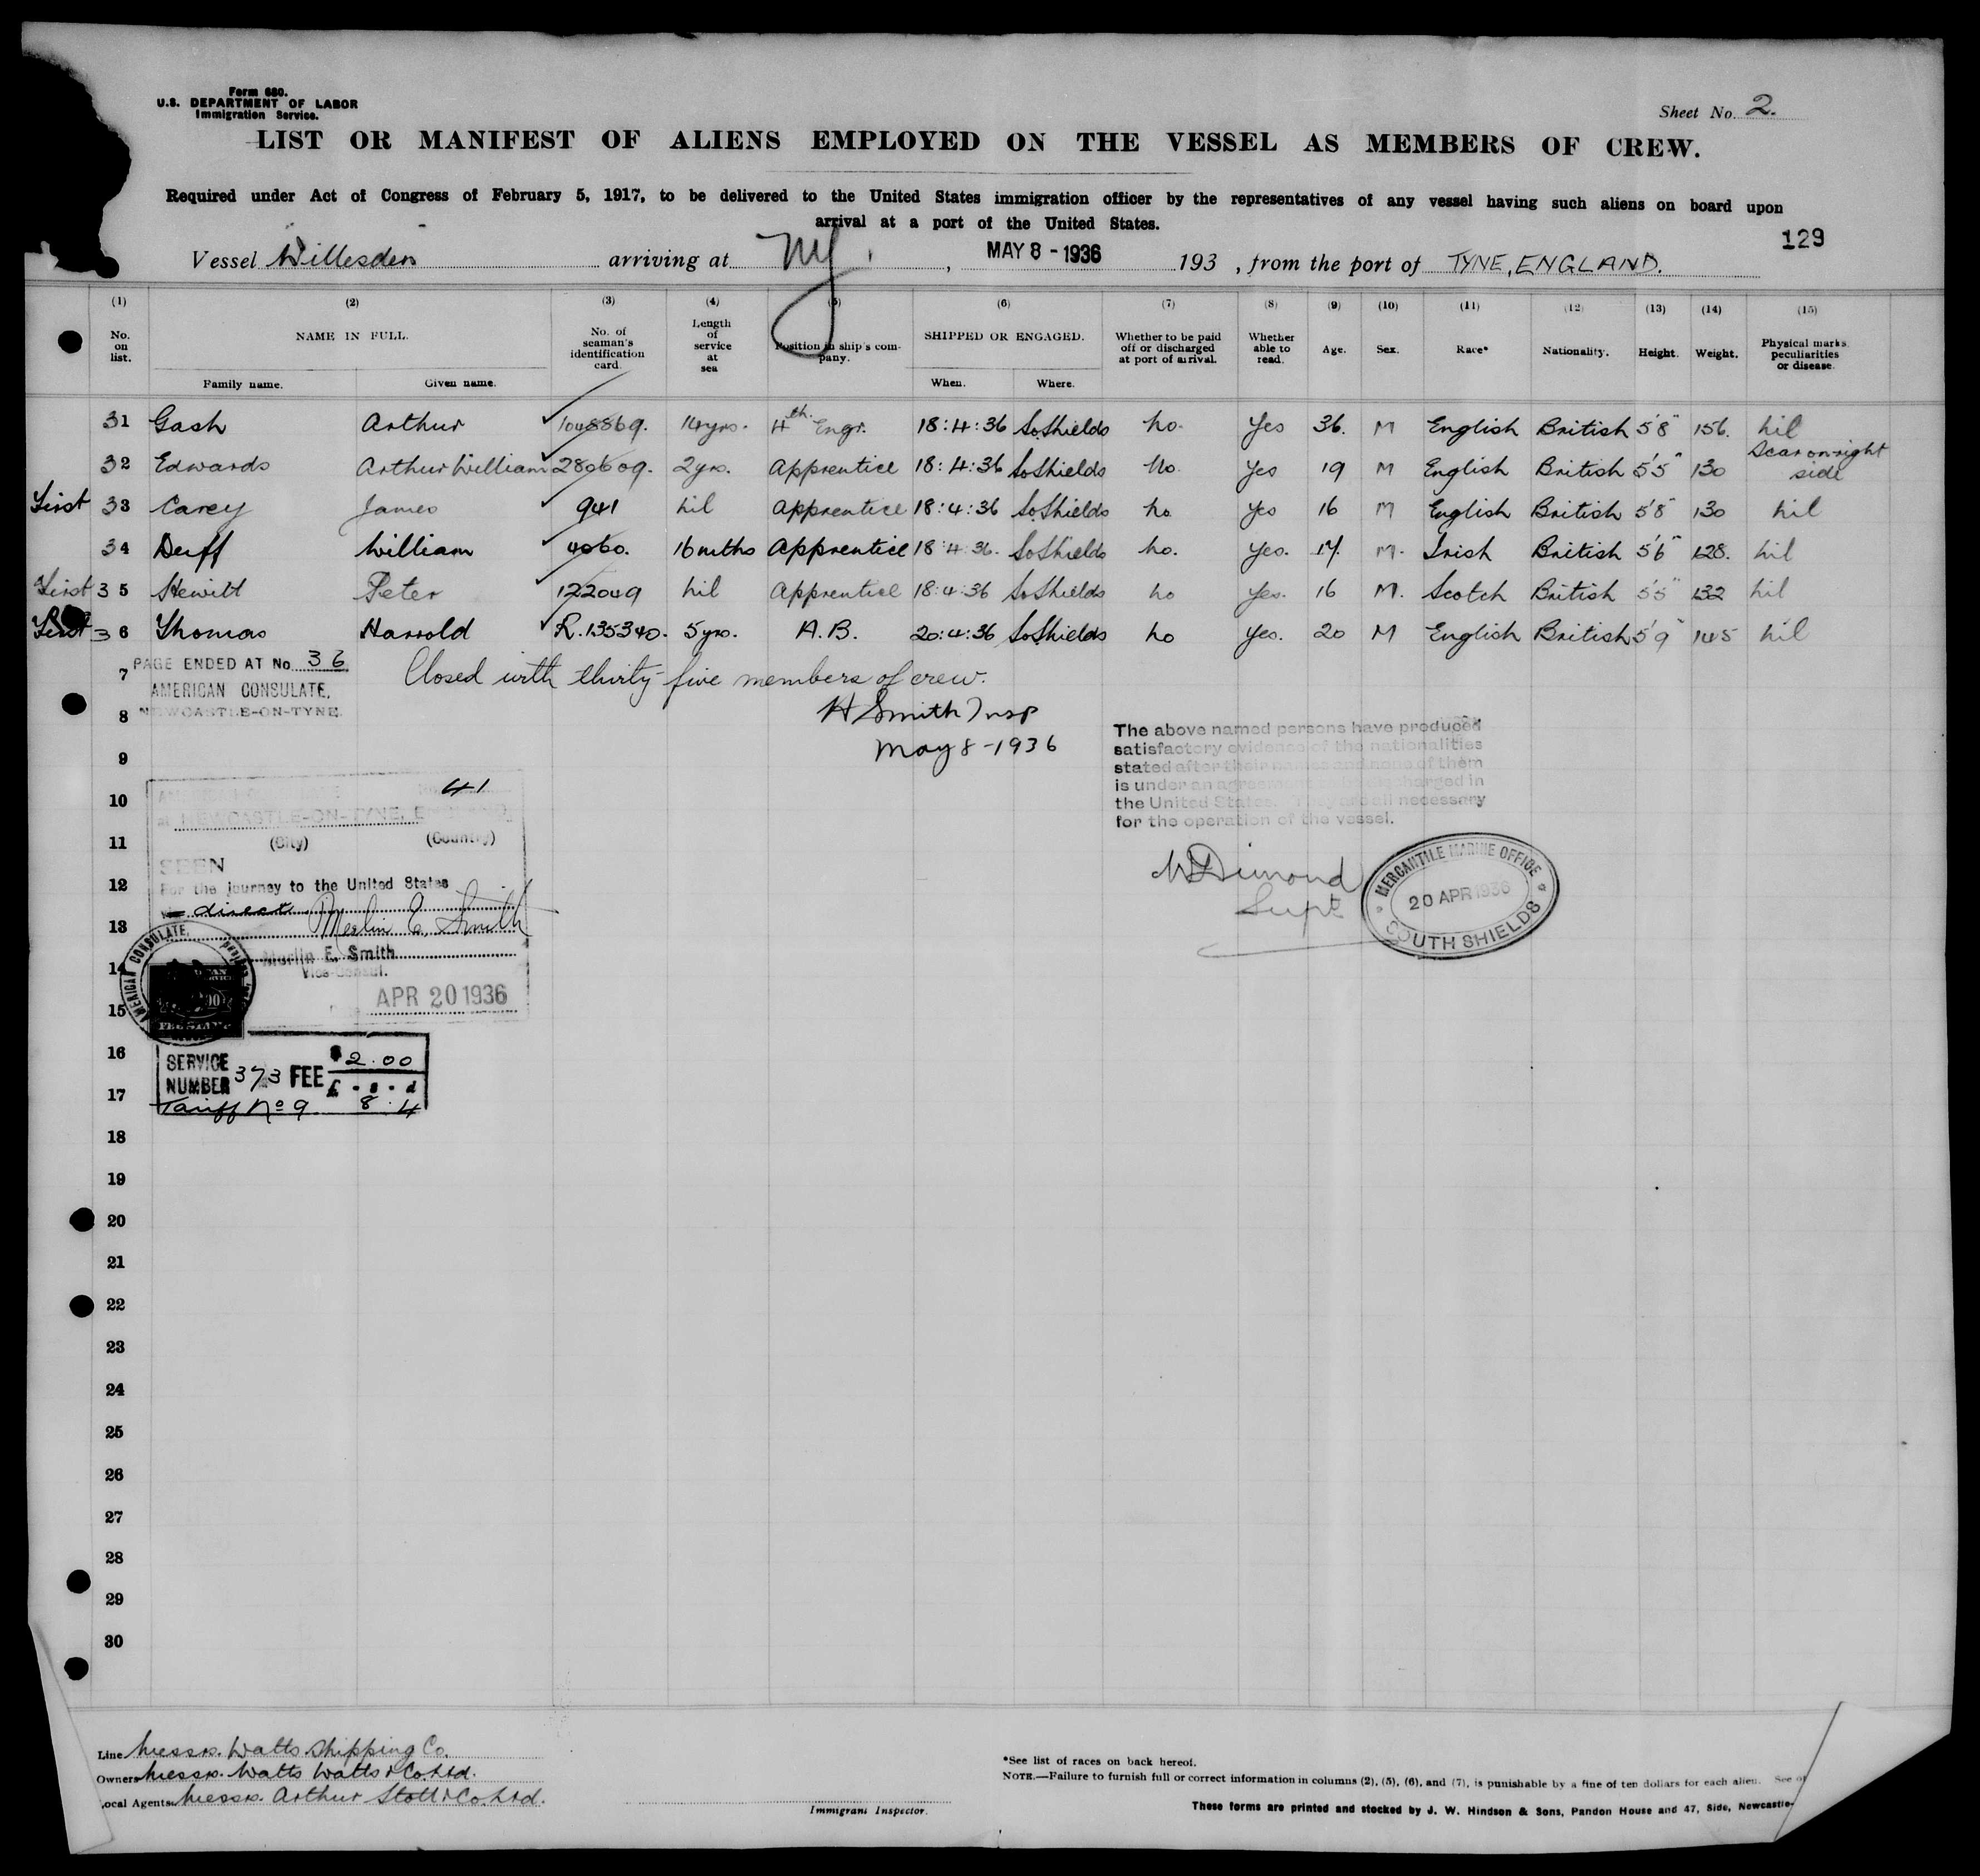 Form 680.
U.S. DEPARTMENT OF LABOR
Immigration Service.
Sheet No. 2.
LIST OR MANIFEST OF ALIENS EMPLOYED ON THE VESSEL AS MEMBERS OF CREW.
Required under Act of Congress of February 5, 1917, to be delivered to the United States immigration officer by the representatives of any vessel having such aliens on board upon
arrival at a port of the United States.
129
Vessel Willesden arriving at NY. , MAY 8 - 1936 193 , from the port of TYNE, ENGLAND.
(1) (2) (3) (4) (5) (6) (7) (8) (9) (10) (11) (12) (13) (14) (15)
No. on list. NAME IN FULL. No. of seaman's identification card. Length of service at sea Position in ship's company. SHIPPED OR ENGAGED. Whether to be paid off or discharged at port of arrival. Whether able to read. Age. Sex. Race* Nationality. Height. Weight. Physical marks, peculiarities or disease.
Family name. Given name. When. Where.
31 Gash Arthur 1048869. 14yrs. 4th Engr. 18:4:36 So.Shields No. Yes 36. M English British 5'8" 156. Nil
32 Edwards Arthur William 280609. 2yrs. Apprentice 18:4:36 So.Shields No. Yes 19 M English British 5'5" 130 Scar on right side
First 33 Carey James 941 Nil Apprentice 18:4:36 So.Shields No Yes 16 M English British 5'8" 130 Nil
34 Duff William 4060. 16 mths Apprentice 18:4:36. So.Shields No. Yes. 17. M. Irish British 5'6" 128. Nil
First 35 Hewitt Peter 122049 Nil Apprentice 18:4:36 So.Shields No Yes. 16 M. Scotch British 5'5" 132 Nil
First 36 Thomas Harrold R.135340. 5yrs. A.B. 20:4:36 So.Shields No Yes. 20 M English British 5'9" 145 Nil
7 PAGE ENDED AT No. 36 Closed with thirty-five members of crew.
AMERICAN CONSULATE,
8 NEWCASTLE-ON-TYNE.
H Smith Insp
May 8-1936
The above named persons have produced
satisfactory evidence of the nationalities
stated after their names and none of them
is under an agreement to be discharged in
the United States. They are all necessary
for the operation of the vessel.
9
10 41
at NEWCASTLE-ON-TYNE, ENGLAND.
11 (City) (Country)
SEEN
12 For the journey to the United States
direct
13 Merlin E. Smith
Merlin E. Smith
14 Vice-Consul.
AMERICAN CONSULATE,
FEE STAMP
15 APR 20 1936
Dimond
Supt
MERCANTILE MARINE OFFICE
20 APR 1936
SOUTH SHIELDS
16 SERVICE NUMBER 373 FEE $2.00
£ . s . d
17 Tariff No 9 8 . 4
18
19
20
21
22
23
24
25
26
27
28
29
30
Line Messrs. Watts Shipping Co.
Owners Messrs. Watts Watts & Co. Ltd.
Local Agents Messrs. Arthur Stott & Co. Ltd.
Immigrant Inspector.
*See list of races on back hereof.
NOTE.—Failure to furnish full or correct information in columns (2), (5), (6), and (7), is punishable by a fine of ten dollars for each alien. See
These forms are printed and stocked by J. W. Hindson & Sons, Pandon House and 47, Side, Newcastle-